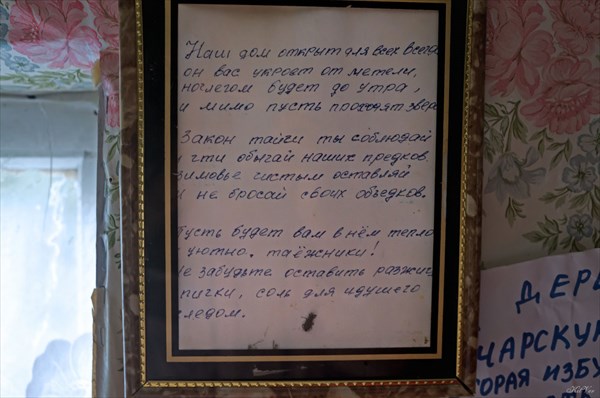 Наш дом открыт для всех всегда
он вас укроет от метели,
ночлегом будет до утра,
и мимо пусть проходят звер
Закон тайги ты соблюдай
и чти обычай наших предков.
Зимовье чистым оставляй
и не бросай своих объедков.
Пусть будет вам в нём тепло
уютно. таёжники!
Не забудьте оставить разжиг
спички, соль для идущего
следом.
ДЕРЕ
ЧАРСКУ
ТОРАЯ ИЗБУ